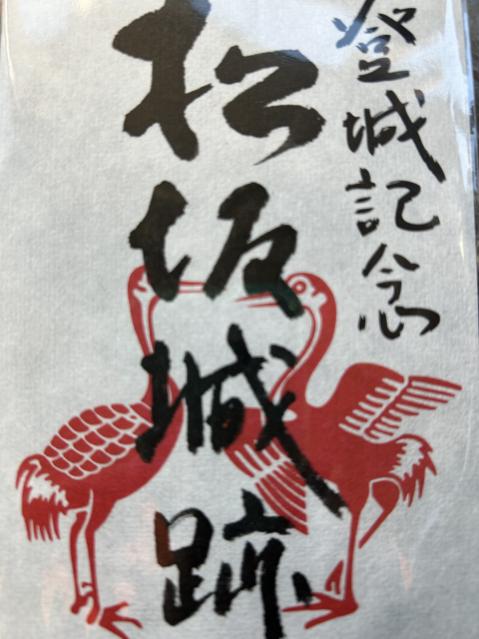 登城記念
松坂城跡